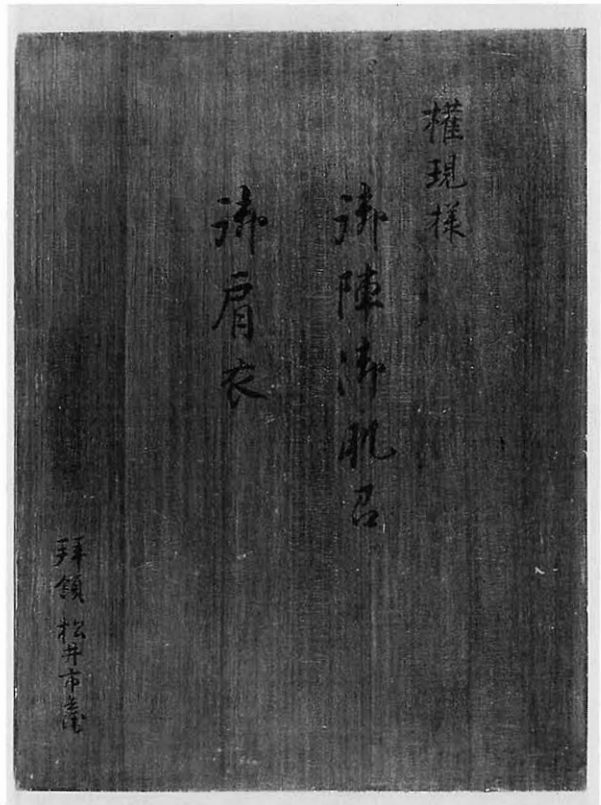 權現様
御陣御肌召
御肩衣
拝領 松井市